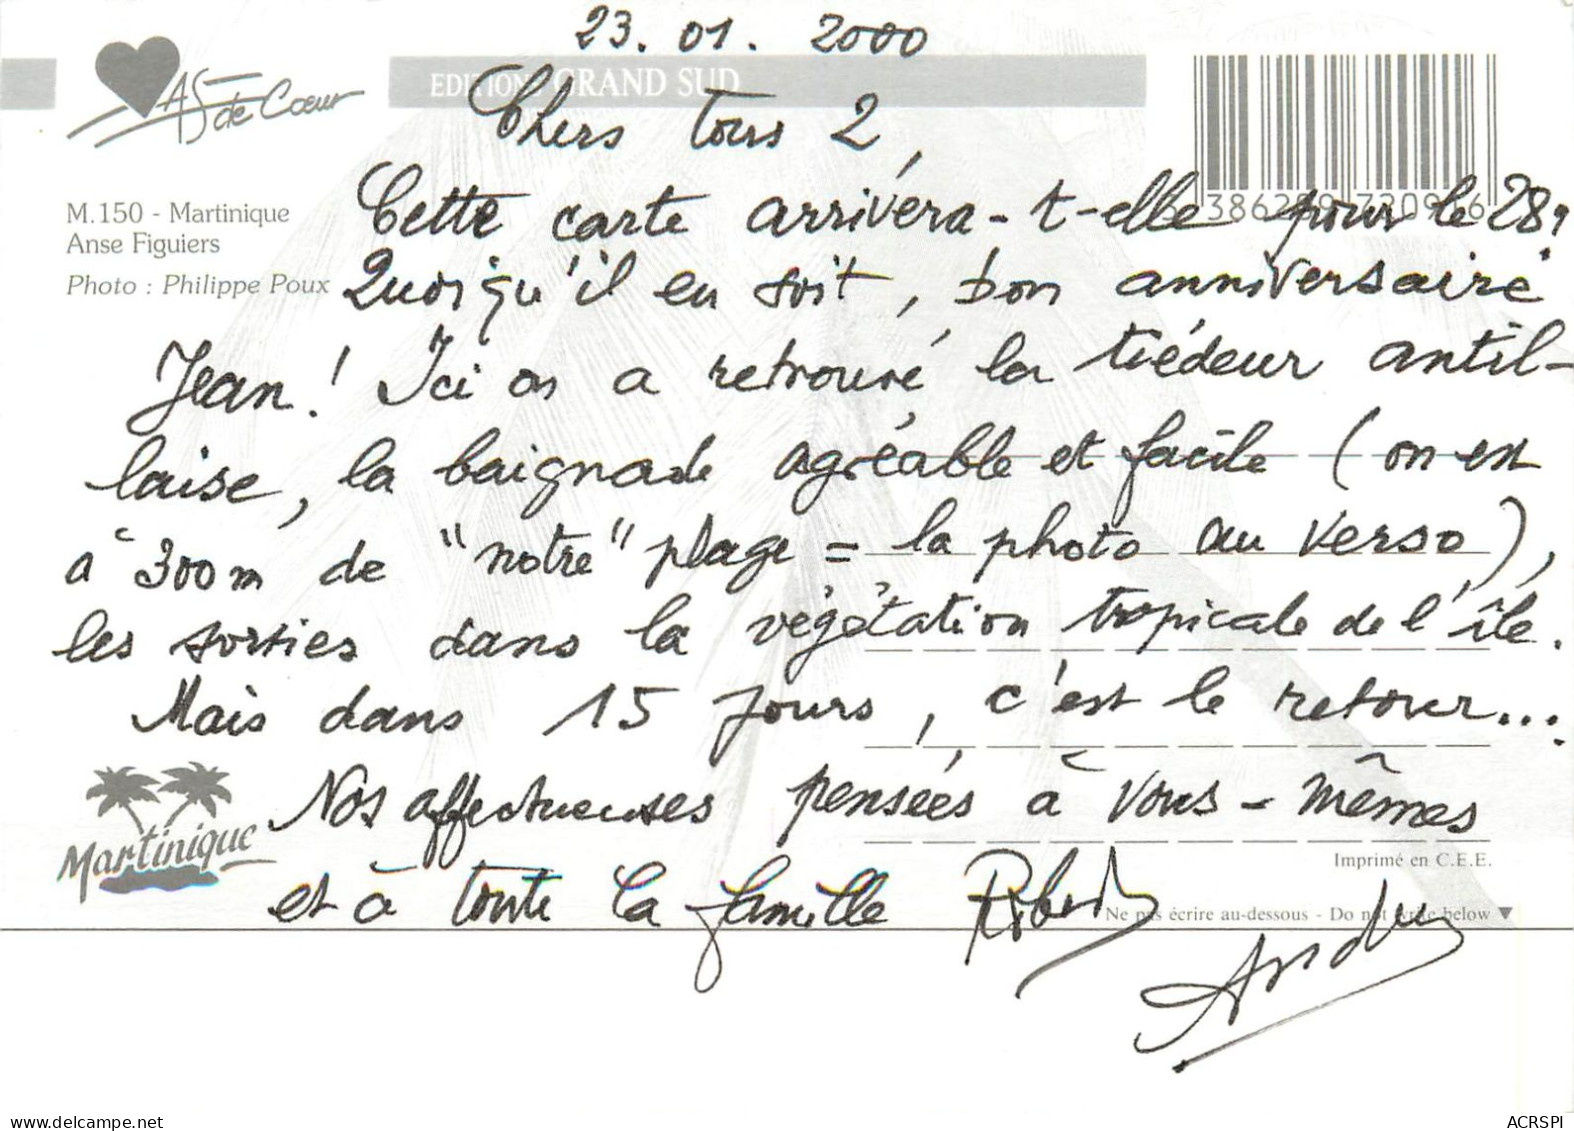 23. 01. 2000
As de Coeur
EDITIONS GRAND SUD
Chers tous 2,
M.150 - Martinique
Anse Figuiers
Photo : Philippe Poux
Cette carte arrivera-t-elle pour le 28?
Quoiqu'il en soit, bon anniversaire
Jean! Ici on a retrouvé la tiédeur antil-
laise, la baignade agréable et facile (on est
à 300m de "notre" plage = la photo au verso),
les sorties dans la végétation tropicale de l'île.
Mais dans 15 jours, c'est le retour...
Nos affectueuses pensées à vous-mêmes
Martinique
Imprimé en C.E.E.
et à toute la famille
Ne pas écrire au-dessous - Do not write below ▼
delcampe.net
ACRSPI